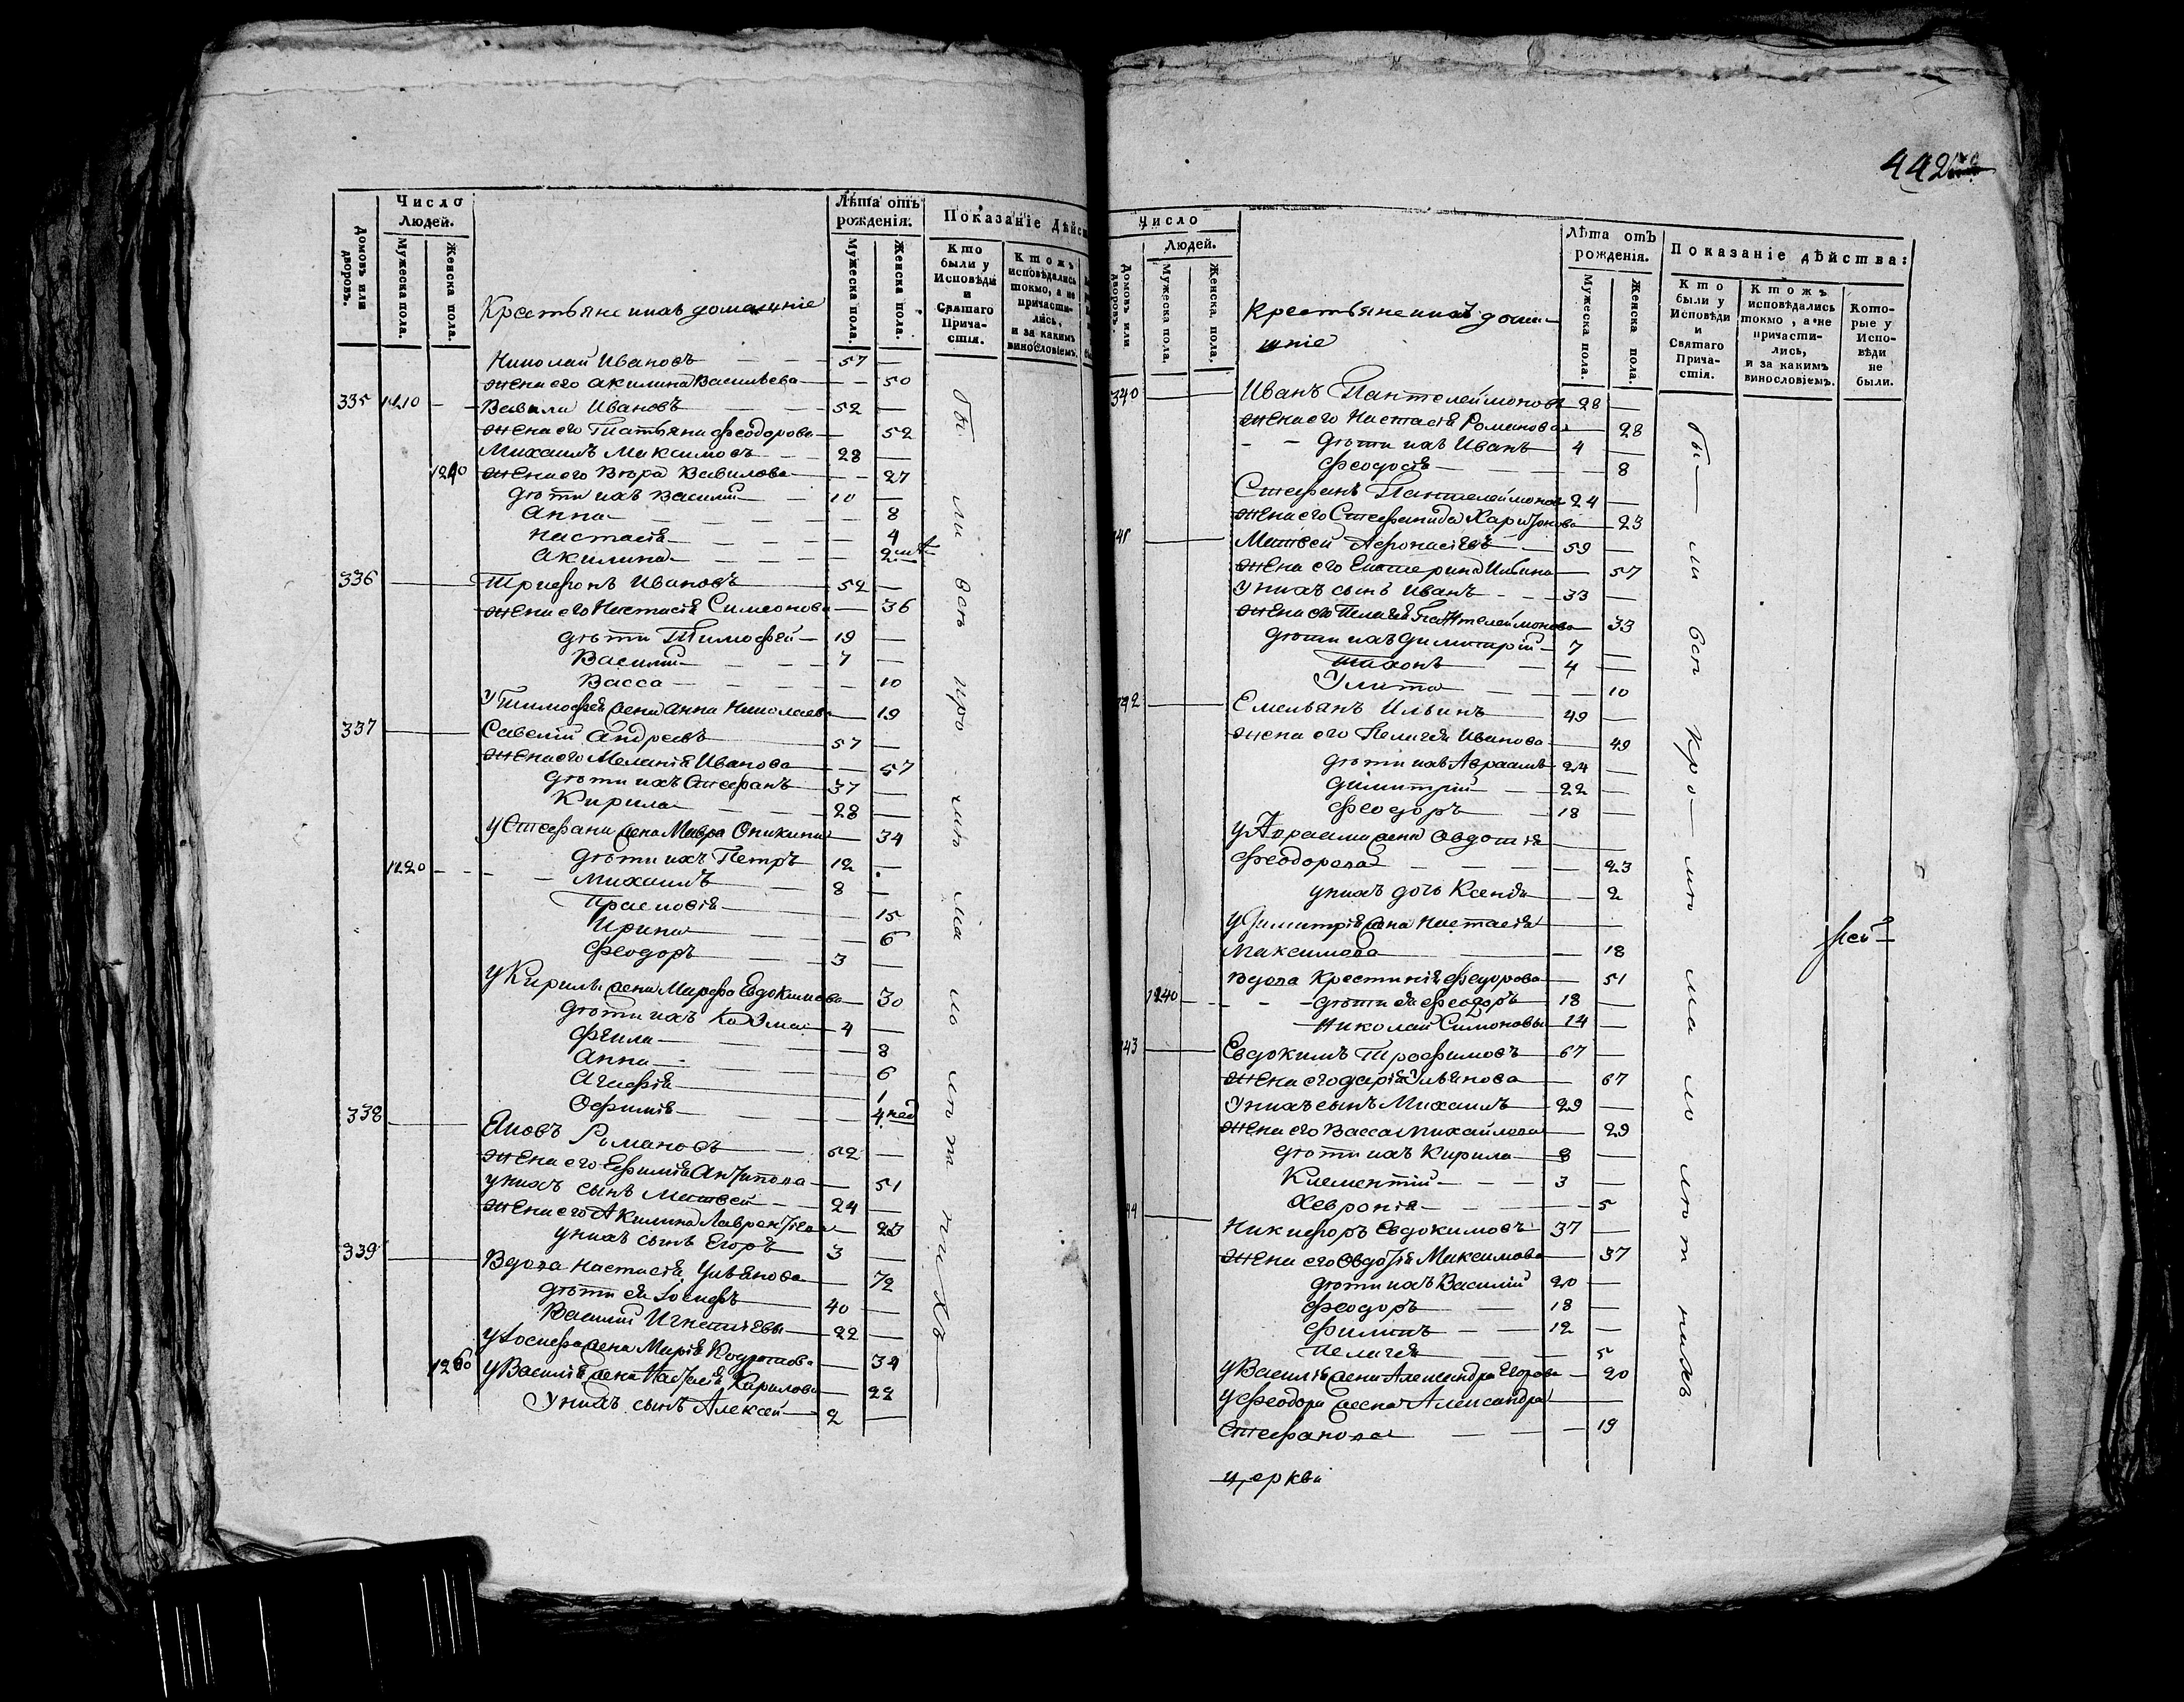 Число Людей.
Лѣта отъ рожденія.
Показаніе Дѣйст
Домовъ или дворовъ.
Мужеска пола.
Женска пола.
Крестьяне ихъ домашніе
Мужеска пола.
Женска пола.
Кто были у Исповѣди и Святаго Причастія.
Ктожъ исповѣдались токмо, а не причастились, и за какимъ винословіемъ.
Николай Ивановъ 57
жена его Акилина Васильева 50
335 1210 Вавила Ивановъ 52
жена его Татьяна Феодорова 52
Михаилъ Максимовъ 28
1240 жена его Вѣра Вавилова 27
дѣти ихъ Василий 10
Анна 8
Настасія 4
Акилина 2
336 Трифонъ Ивановъ 52
жена его Настасія Симеонова 36
дѣти Тимофей 19
Василий 7
Васса 10
У Тимофея жена Анна Николаева 19
337 Савелій Андреевъ 57
жена его Меланія Иванова 57
дѣти ихъ Стефанъ 37
Кирила 28
у Стефана жена Мавра Оникина 34
дѣти ихъ Петръ 12
1220 Михаилъ 8
Прасковія 15
Ирина 6
Феодоръ 3
у Кирилы жена Марфа Евдокимова 30
дѣти ихъ Козма 4
Фекла 8
Анна 6
Агафія 1
Офимія 4 нед
338 Яковъ Романовъ 52
жена его Ефимія Антипова 51
у нихъ сынъ Матвей 24
жена его Акилина Лаврентіева 23
у нихъ сынъ Егоръ 3
339 Вдова Настасія Ульянова 72
дѣти ея Іосифъ 40
Василий Игнатіевы 22
у Іосифа жена Марія Кодратова 34
1260 у Василія жена Настасія Кирилова 22
У нихъ сынъ Алексей 2
бы ли всѣ про мѣ ма ло лѣт нихъ
442
Число Людей.
Лѣта отъ рожденія.
Показаніе дѣйства:
Домовъ или дворовъ.
Мужеска пола.
Женска пола.
Крестьяне ихъ дома-
шніе
Мужеска пола.
Женска пола.
Кто были у Исповѣди и Святаго Причастія.
Ктожъ исповѣдались токмо, а не причастились, и за какимъ винословіемъ.
Которые у Исповѣди не были.
340 Иванъ Пантелеймоновъ 28
жена его Настасія Романова 28
дѣти ихъ Иванъ 4
Феодосія 8
Стефанъ Пантелеймонов 24
жена его Стефанида Харитонова 23
341 Матвей Афонасіевъ 59
жена его Екатерина Ильина 57
У нихъ сынъ Иванъ 33
жена его Пелагея Пантелеймонова 33
дѣти ихъ Димитрій 7
Тихонъ 4
Улита 10
342 Емельянъ Ильинъ 49
жена его Пелагея Иванова 49
дѣти ихъ Авраамъ 24
Димитрій 22
Феодоръ 18
у Авраама жена Овдотія
Феодорова 23
у нихъ дочь Ксенія 2
у Димитрія жена Настасія
Максимова 18
вдова Крестинія Федорова 51
1240 дѣти ея Феодоръ 18
Николай Симоновы 14
343 Евдокимъ Трофимовъ 67
жена его Дарія Ульянова 67
У нихъ сынъ Михаилъ 29
жена его Васса Михайлова 29
дѣти ихъ Кирила 8
Климентій 3
Хевронія 5
344 Никифоръ Евдокимовъ 37
жена его Овдотія Максимова 37
дѣти ихъ Василій 20
Феодоръ 18
Филипъ 12
Пелагея 5
у Василія жена Александра Егорова 20
у Феодора жена Александра
Стефанова 19
бы ли всѣ кро мѣ ма ло лѣт нихъ
церкви